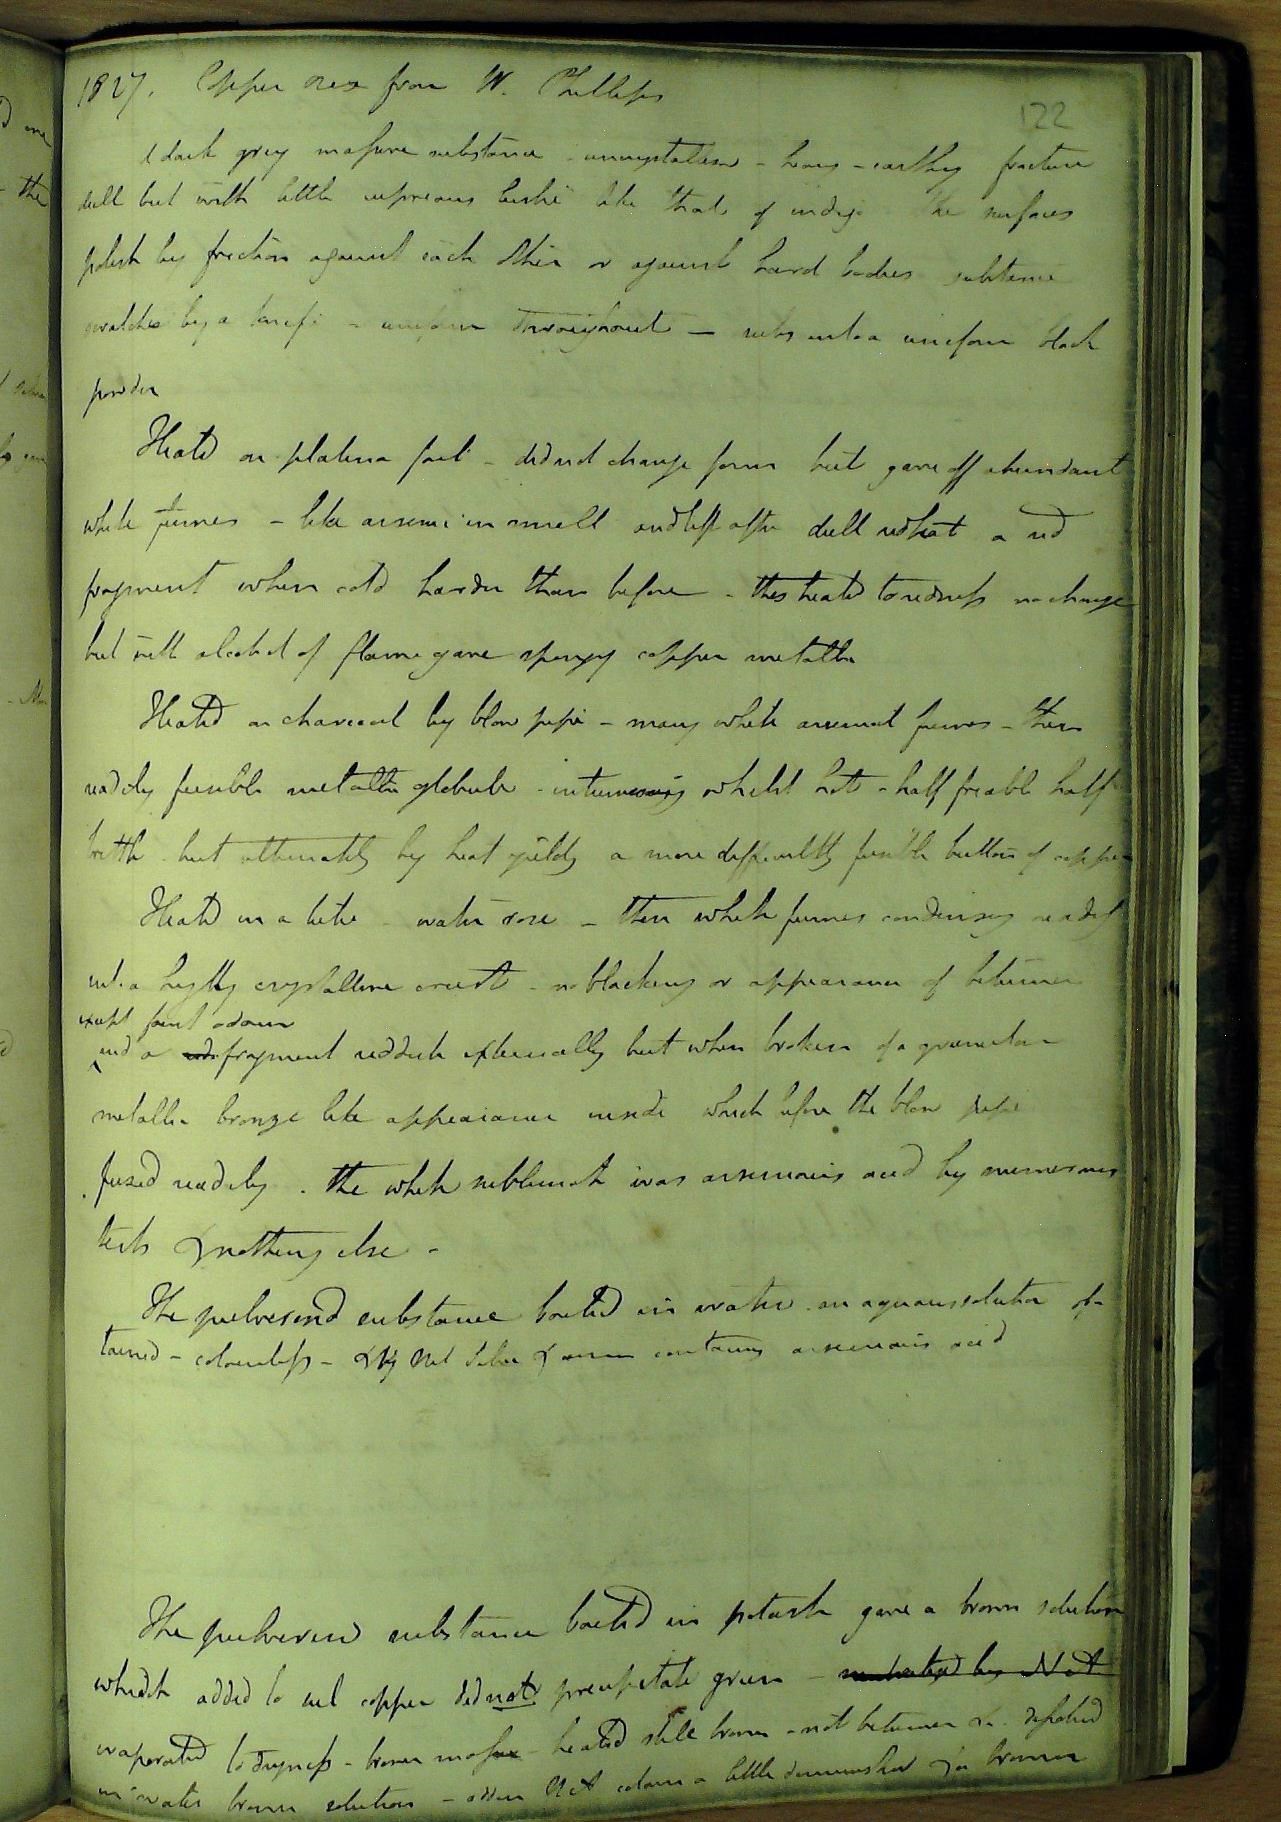 1827. Copper ores from W. Phillips
122
A dark grey massive substance - uncrystallised - heavy - earthy fracture
dull but with little cupreous lustre like that of indigo The surfaces
polish by friction against each other or against hard bodies substance
scratched by a knife - uniform throughout - rubs into a uniform black
powder
Heated on platina foil - did not change form but gave off abundant
white fumes - like arsenic in smell and left after dull red heat a red
fragment when cold harder than before - this heated to redness no change
but with alcohol of flame gave spongy copper metallic
Heated on charcoal by blow pipe - many white arsenical fumes - then
readily fusible metallic globule - intumescing whilst hot - half friable half
brittle but ultimately by heat yields a more difficultly fusible button of copper
Heated in a tube - water rose - then white fumes condensing readily
into a highly crystalline crust - no blackening or appearance of bitumen
except faint odour
and a red fragment reddish externally but when broken of a granular
metallic bronze like appearance inside which before the blow pipe
fused readily. The white sublimate was arsenious acid by numerous
tests & nothing else -
The pulverised substance boiled in water - an aqueous solution ob-
tained - colourless - & by Nit Silver & amm contains arsenious acid
The pulverised substance boiled in potash gave a brown solution
which added to sul copper did not precipitate green - neutralized by N A
evaporated to dryness - brown mass - heated still brown - not bitumen &c. dissolved
in water brown solution - adding N A colour a little diminished & a brown